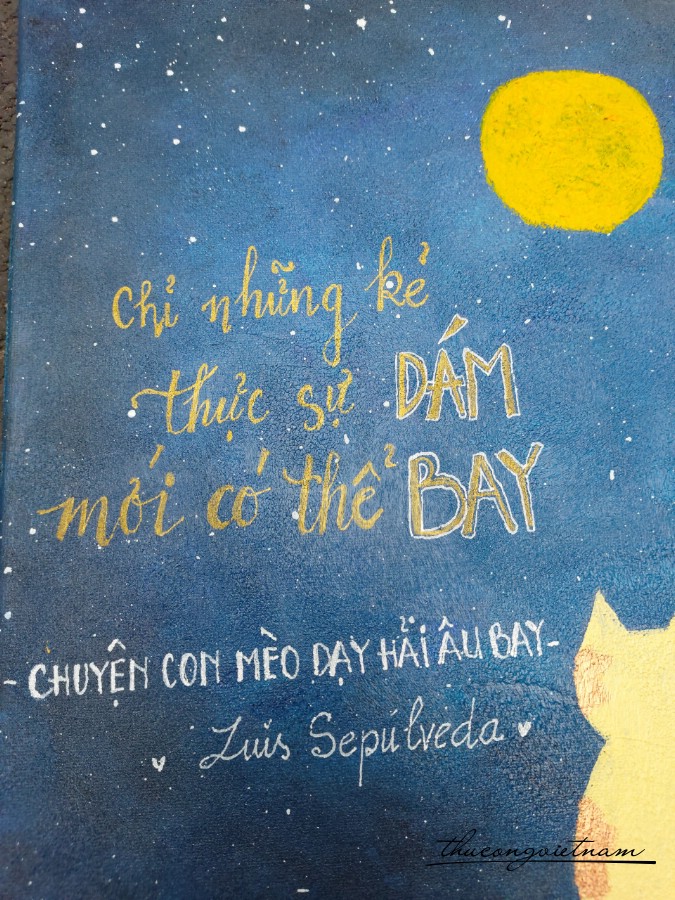 chỉ những kẻ
thực sự DÁM
mới có thể BAY
- CHUYỆN CON MÈO DẠY HẢI ÂU BAY-
Luis Sepúlveda
thucongvietnam